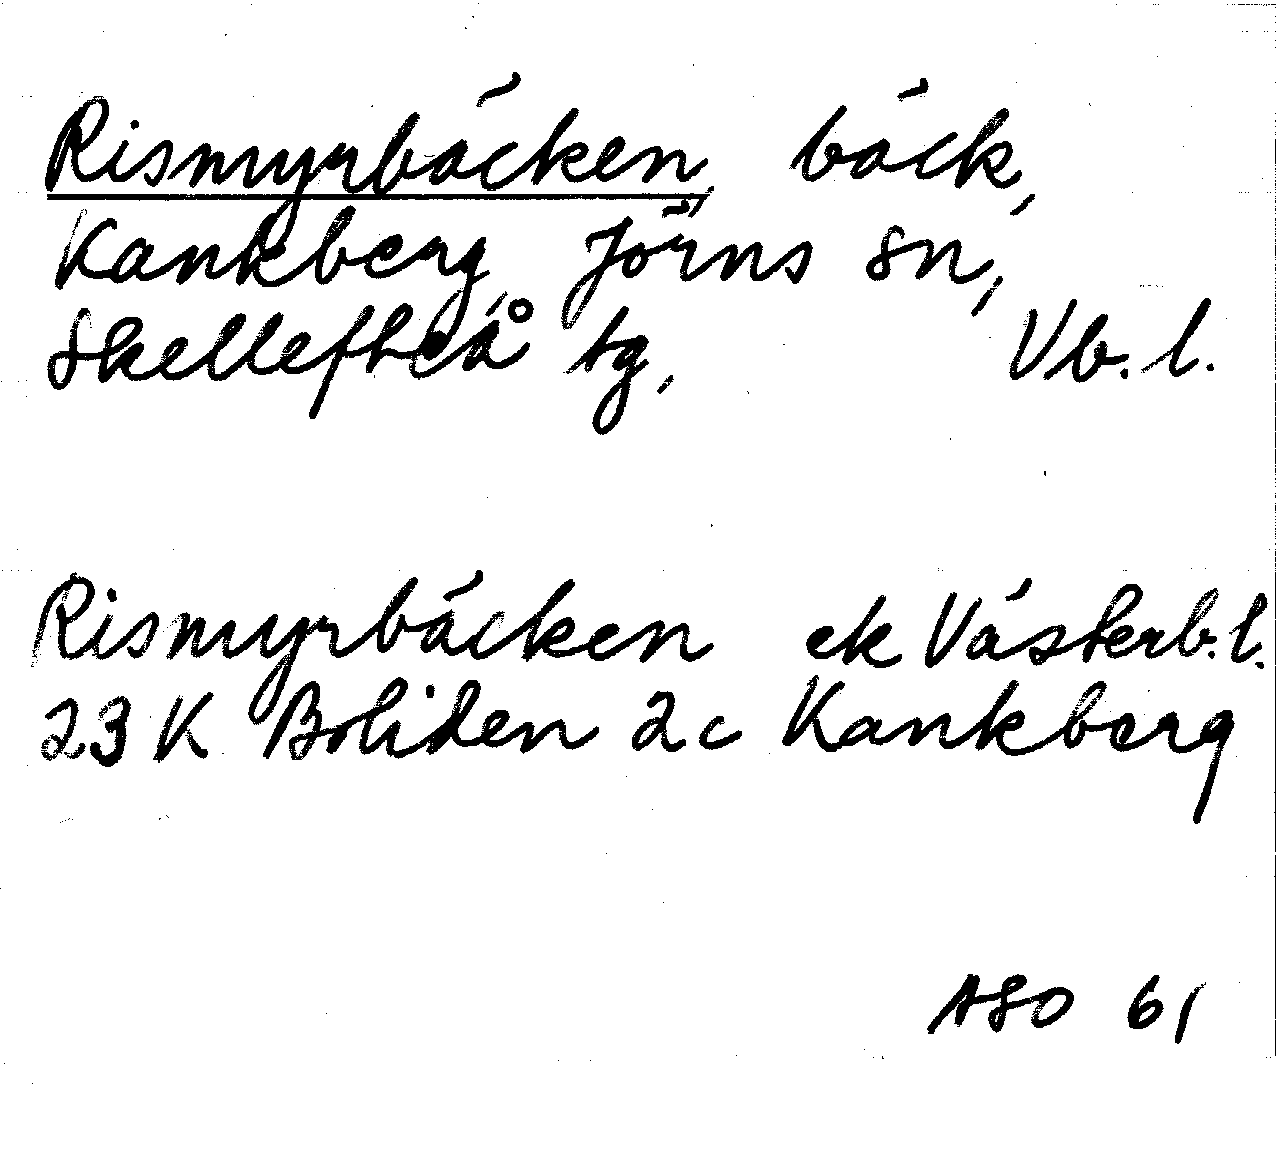 Rismyrbäcken, bäck,
Kankberg, Jörns sn,
Skellefteå tg, Vb. l.
Rismyrbäcken ek Västerb. l.
23 K Boliden 2 c Kankberg
ASO 61